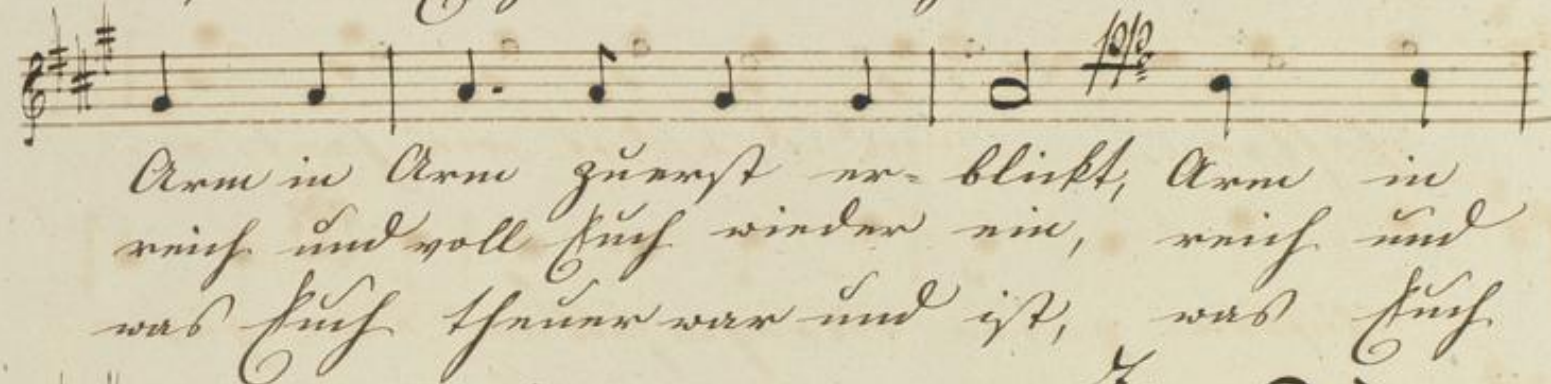 Arm in Arm zuerst er- blickt, Arm in
reich und voll Euch wieder ein, reich und
was Euch theuer war und ist, was Euch